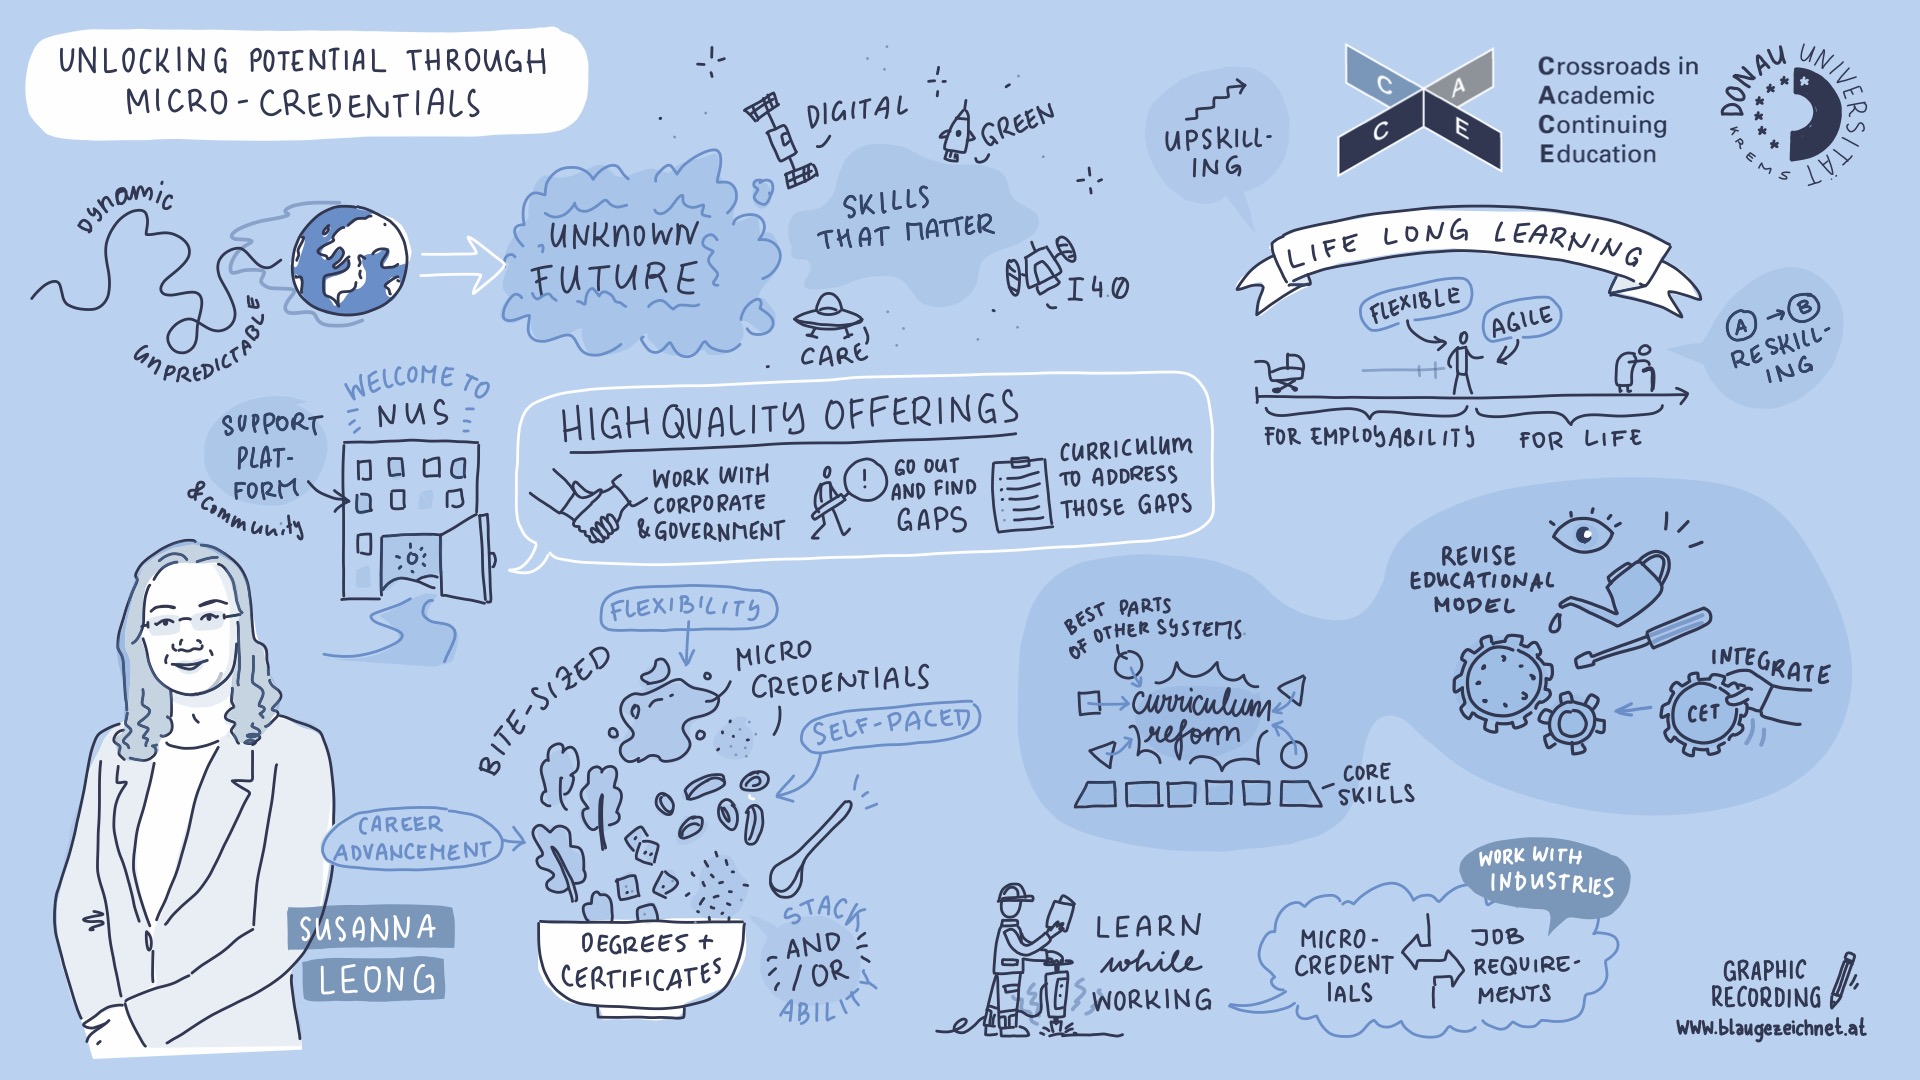 UNLOCKING POTENTIAL THROUGH
MICRO-CREDENTIALS
DYNAMIC
UNPREDICTABLE
UNKNOWN
FUTURE
DIGITAL
GREEN
SKILLS
THAT MATTER
I 4.0
CARE
UPSKILL-
ING
C A
C E
Crossroads in
Academic
Continuing
Education
DONAU UNIVERSITÄT
KREMS
LIFE LONG LEARNING
FLEXIBLE
AGILE
A → B
RESKILL-
ING
FOR EMPLOYABILITY
FOR LIFE
WELCOME TO
NUS
SUPPORT
PLAT-
FORM
& community
HIGH QUALITY OFFERINGS
WORK WITH
CORPORATE
& GOVERNMENT
!
GO OUT
AND FIND
GAPS
CURRICULUM
TO ADDRESS
THOSE GAPS
SUSANNA
LEONG
FLEXIBILITY
BITE-SIZED
MICRO
CREDENTIALS
SELF-PACED
CAREER
ADVANCEMENT
DEGREES +
CERTIFICATES
STACK
AND
/ OR
ABILITY
BEST PARTS
OF OTHER SYSTEMS
curriculum
reform
CORE
SKILLS
REVISE
EDUCATIONAL
MODEL
INTEGRATE
CET
LEARN
while
WORKING
WORK WITH
INDUSTRIES
MICRO-
CREDENT
IALS
JOB
REQUIRE-
MENTS
GRAPHIC
RECORDING
www.blaugezeichnet.at